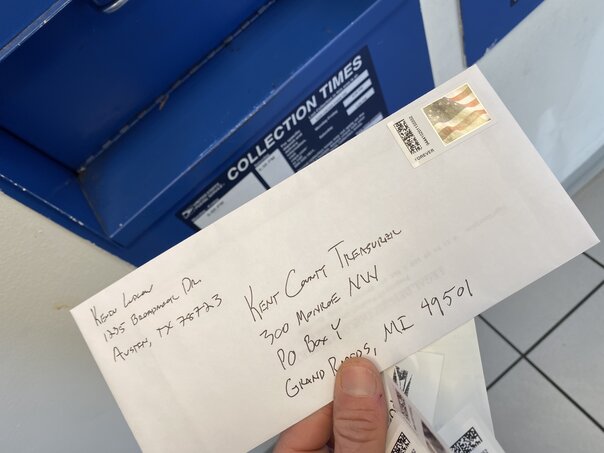 COLLECTION TIMES
FOREVER
Kevin Ludlow
1235 Broadmoor Dr.
Austin, TX 78723
Kent County Treasurer
300 Monroe NW
PO Box Y
Grand Rapids, MI 49501